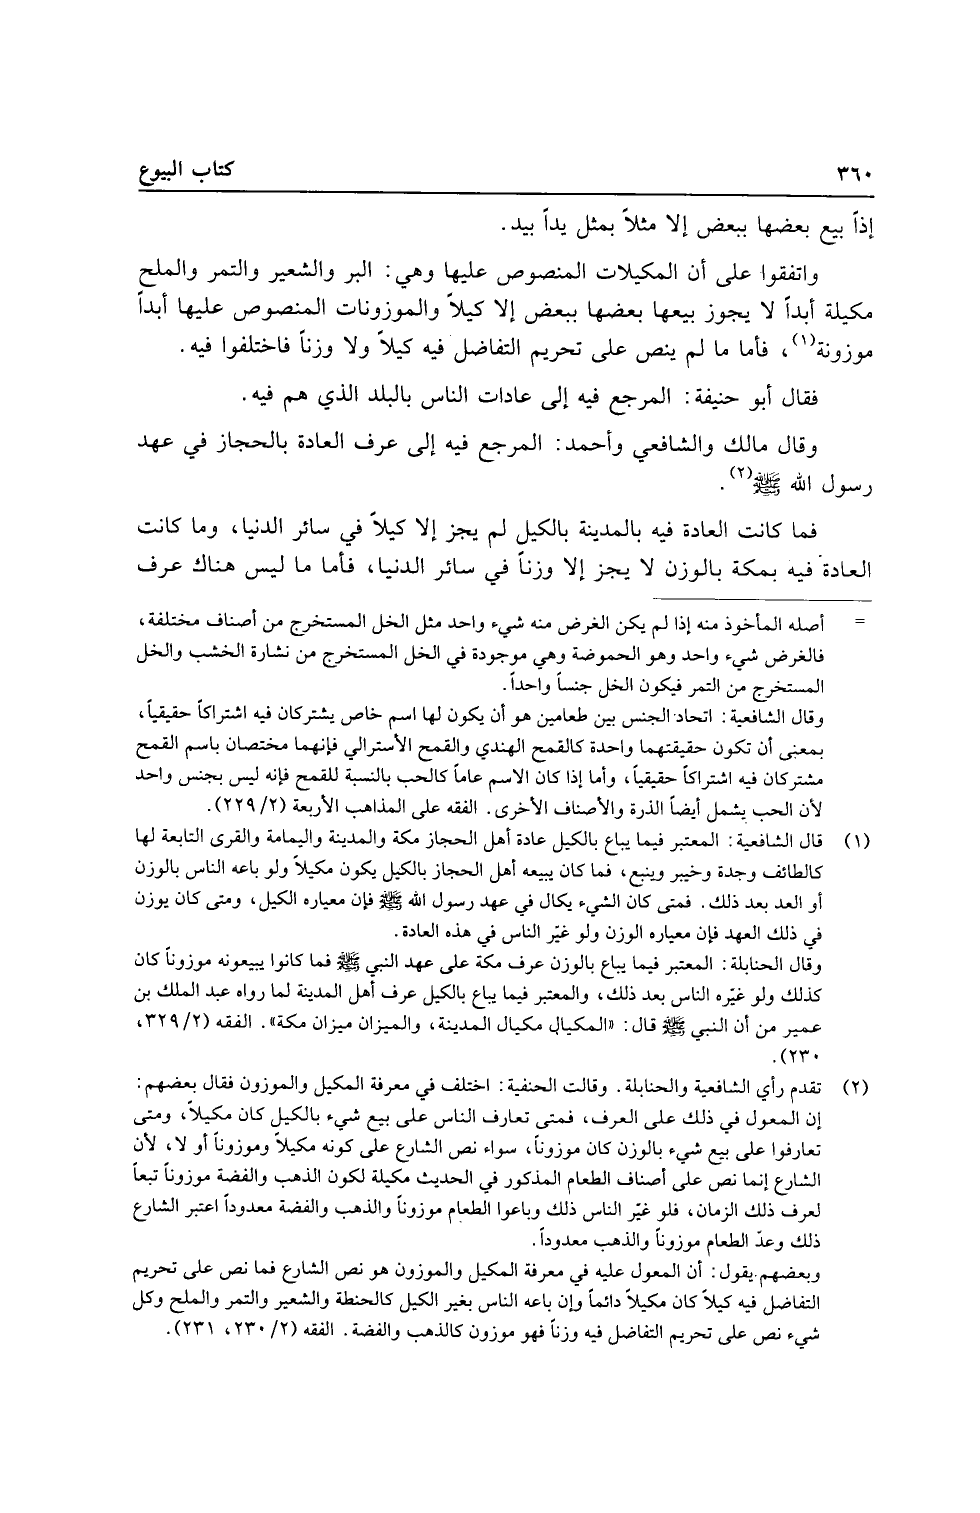 ٣٦٠ كتاب البيوع
إذاً بيع بعضها ببعض إلا مثلاً بمثل يداً بيد.
واتفقوا على أن المكيلات المنصوص عليها وهي: البر والشعير والتمر والملح
مكيلة أبداً لا يجوز بيعها بعضها ببعض إلا كيلاً والموزونات المنصوص عليها أبداً
موزونة(١)، فأما ما لم ينص على تحريم التفاضل فيه كيلاً ولا وزناً فاختلفوا فيه.
فقال أبو حنيفة: المرجع فيه إلى عادات الناس بالبلد الذي هم فيه.
وقال مالك والشافعي وأحمد: المرجع فيه إلى عرف العادة بالحجاز في عهد
رسول الله ﷺ(٢).
فما كانت العادة فيه بالمدينة بالكيل لم يجز إلا كيلاً في سائر الدنيا، وما كانت
العادة فيه بمكة بالوزن لا يجز إلا وزناً في سائر الدنيا، فأما ما ليس هناك عرف
= أصله المأخوذ منه إذا لم يكن الغرض منه شيء واحد مثل الخل المستخرج من أصناف مختلفة،
فالغرض شيء واحد وهو الحموضة وهي موجودة في الخل المستخرج من نشارة الخشب والخل
المستخرج من التمر فيكون الخل جنساً واحداً.
وقال الشافعية: اتحاد الجنس بين طعامين هو أن يكون لها اسم خاص يشتركان فيه اشتراكاً حقيقياً،
بمعنى أن تكون حقيقتهما واحدة كالقمح الهندي والقمح الأسترالي فإنهما مختصان باسم القمح
مشتركان فيه اشتراكاً حقيقياً، وأما إذا كان الاسم عاماً كالحب بالنسبة للقمح فإنه ليس بجنس واحد
لأن الحب يشمل أيضاً الذرة والأصناف الأخرى. الفقه على المذاهب الأربعة (٢/ ٢٢٩).
(١) قال الشافعية: المعتبر فيما يباع بالكيل عادة أهل الحجاز مكة والمدينة واليمامة والقرى التابعة لها
كالطائف وجدة وخيبر وينبع، فما كان يبيعه أهل الحجاز بالكيل يكون مكيلاً ولو باعه الناس بالوزن
أو العد بعد ذلك. فمتى كان الشيء يكال في عهد رسول الله ﷺ فإن معياره الكيل، ومتى كان يوزن
في ذلك العهد فإن معياره الوزن ولو غيّر الناس في هذه العادة.
وقال الحنابلة: المعتبر فيما يباع بالوزن عرف مكة على عهد النبي ﷺ فما كانوا يبيعونه موزوناً كان
كذلك ولو غيّره الناس بعد ذلك، والمعتبر فيما يباع بالكيل عرف أهل المدينة لما رواه عبد الملك بن
عمير من أن النبي ﷺ قال: «المكيال مكيال المدينة، والميزان ميزان مكة». الفقه (٢/ ٣٢٩،
٢٣٠).
(٢) تقدم رأي الشافعية والحنابلة. وقالت الحنفية: اختلف في معرفة المكيل والموزون فقال بعضهم:
إن المعول في ذلك على العرف، فمتى تعارف الناس على بيع شيء بالكيل كان مكيلاً، ومتى
تعارفوا على بيع شيء بالوزن كان موزوناً، سواء نص الشارع على كونه مكيلاً وموزوناً أو لا، لأن
الشارع إنما نص على أصناف الطعام المذكور في الحديث مكيلة لكون الذهب والفضة موزوناً تبعاً
لعرف ذلك الزمان، فلو غيّر الناس ذلك وباعوا الطعام موزوناً والذهب والفضة معدوداً اعتبر الشارع
ذلك وعدّ الطعام موزوناً والذهب معدوداً.
وبعضهم يقول: أن المعول عليه في معرفة المكيل والموزون هو نص الشارع فما نص على تحريم
التفاضل فيه كيلاً كان مكيلاً دائماً وإن باعه الناس بغير الكيل كالحنطة والشعير والتمر والملح وكل
شيء نص على تحريم التفاضل فيه وزناً فهو موزون كالذهب والفضة. الفقه (٢/ ٢٣٠، ٢٣١).